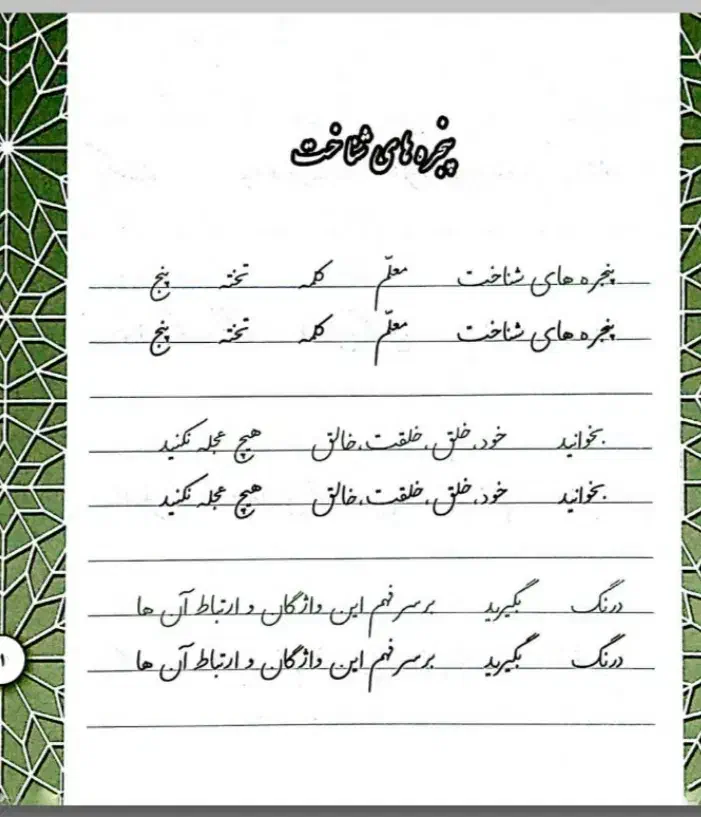 پنجره های شناخت
پنجره های شناخت معلّم کلمه تخته پنج
پنجره های شناخت معلّم کلمه تخته پنج
بخوانید خود، خلق، خلقت، خالق هیچ عجله نکنید
بخوانید خود، خلق، خلقت، خالق هیچ عجله نکنید
درنگ بگیرید بر سر فهم این واژگان و ارتباط آن ها
درنگ بگیرید بر سر فهم این واژگان و ارتباط آن ها
۱